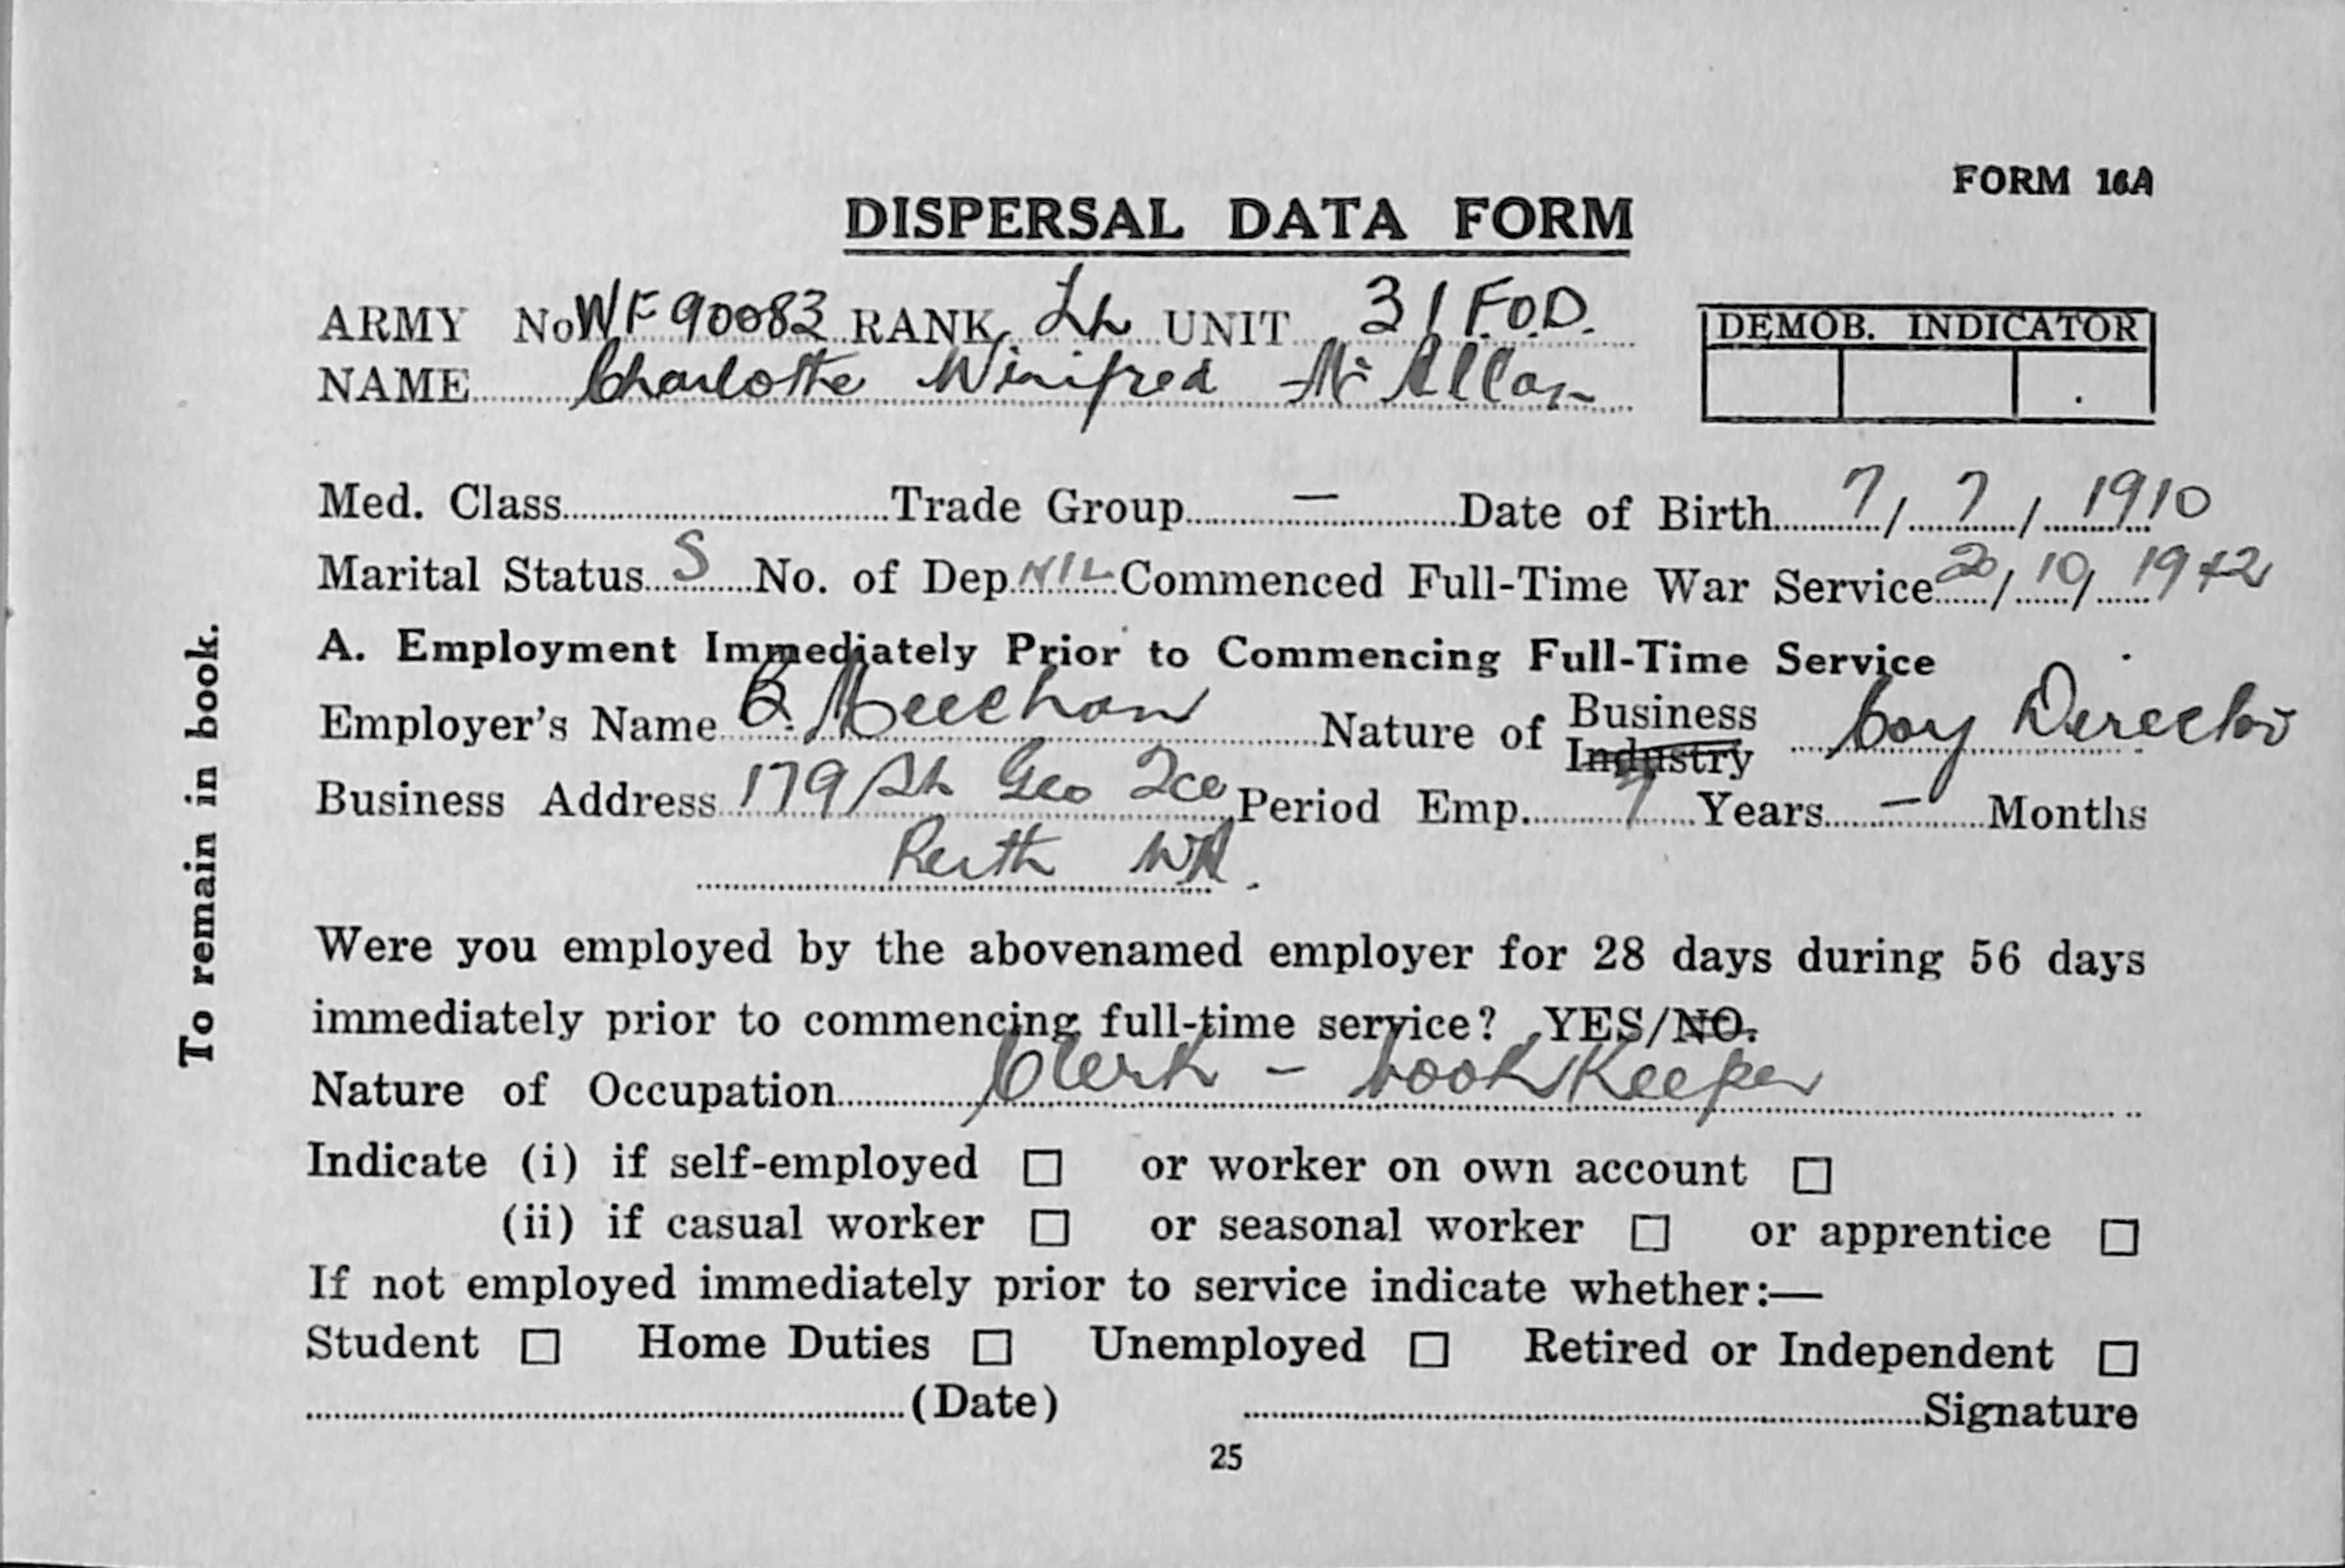 FORM 16A
DISPERSAL DATA FORM
ARMY No WF90083 RANK Lt UNIT 31 F.O.D.
DEMOB. INDICATOR
NAME Charlotte Winifred McAllan
Med. Class Trade Group — Date of Birth 7/7/1910
Marital Status S No. of Dep NIL Commenced Full-Time War Service 20/10/1942
A. Employment Immediately Prior to Commencing Full-Time Service
Employer's Name Meechan Nature of Business Industry Coy Director
Business Address 179 St Geo Tce Period Emp. 7 Years — Months
Perth WA.
Were you employed by the abovenamed employer for 28 days during 56 days
immediately prior to commencing full-time service? YES/NO.
Nature of Occupation Clerk - bookKeeper
Indicate (i) if self-employed □ or worker on own account □
(ii) if casual worker □ or seasonal worker □ or apprentice □
If not employed immediately prior to service indicate whether:—
Student □ Home Duties □ Unemployed □ Retired or Independent □
(Date) Signature
25
To remain in book.